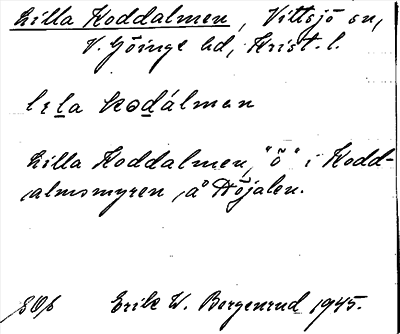 Lilla Koddalmen, Vittsjö sn,
V. Göinge hd, Krist. l.
lɩla kodálmən
Lilla Koddalmen, "ö" i Kodd-
almsmyren å Höjalen.
Erik W. Bergenrud 1945.